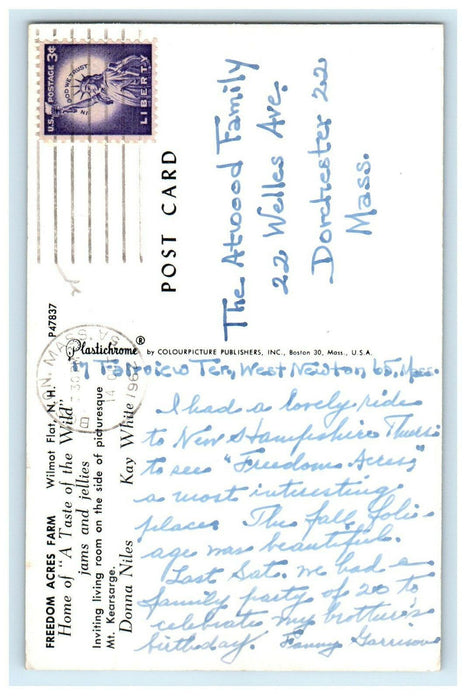 U.S. POSTAGE 3¢
IN GOD WE TRUST
LIBERTY
POST CARD
The Atwood Family
22 Welles Ave.
Dorchester 22
Mass.
P47837
Plastichrome® by COLOURPICTURE PUBLISHERS, INC., Boston 30, Mass., U.S.A.
FREEDOM ACRES FARM Wilmot Flat, N. H.
Home of "A Taste of the Wild"
jams and jellies
Inviting living room on the side of picturesque
Mt. Kearsarge.
Donna Niles Kay White
17 Fairview Ter., West Newton 65, Mass.
I had a lovely ride
to New Hampshire Thurs.
to see "Freedom Acres,"
a most interesting
place. The fall foli-
age was beautiful.
Last Sat. we had a
family party of 20 to
celebrate my brother's
birthday. Fanny Garrison